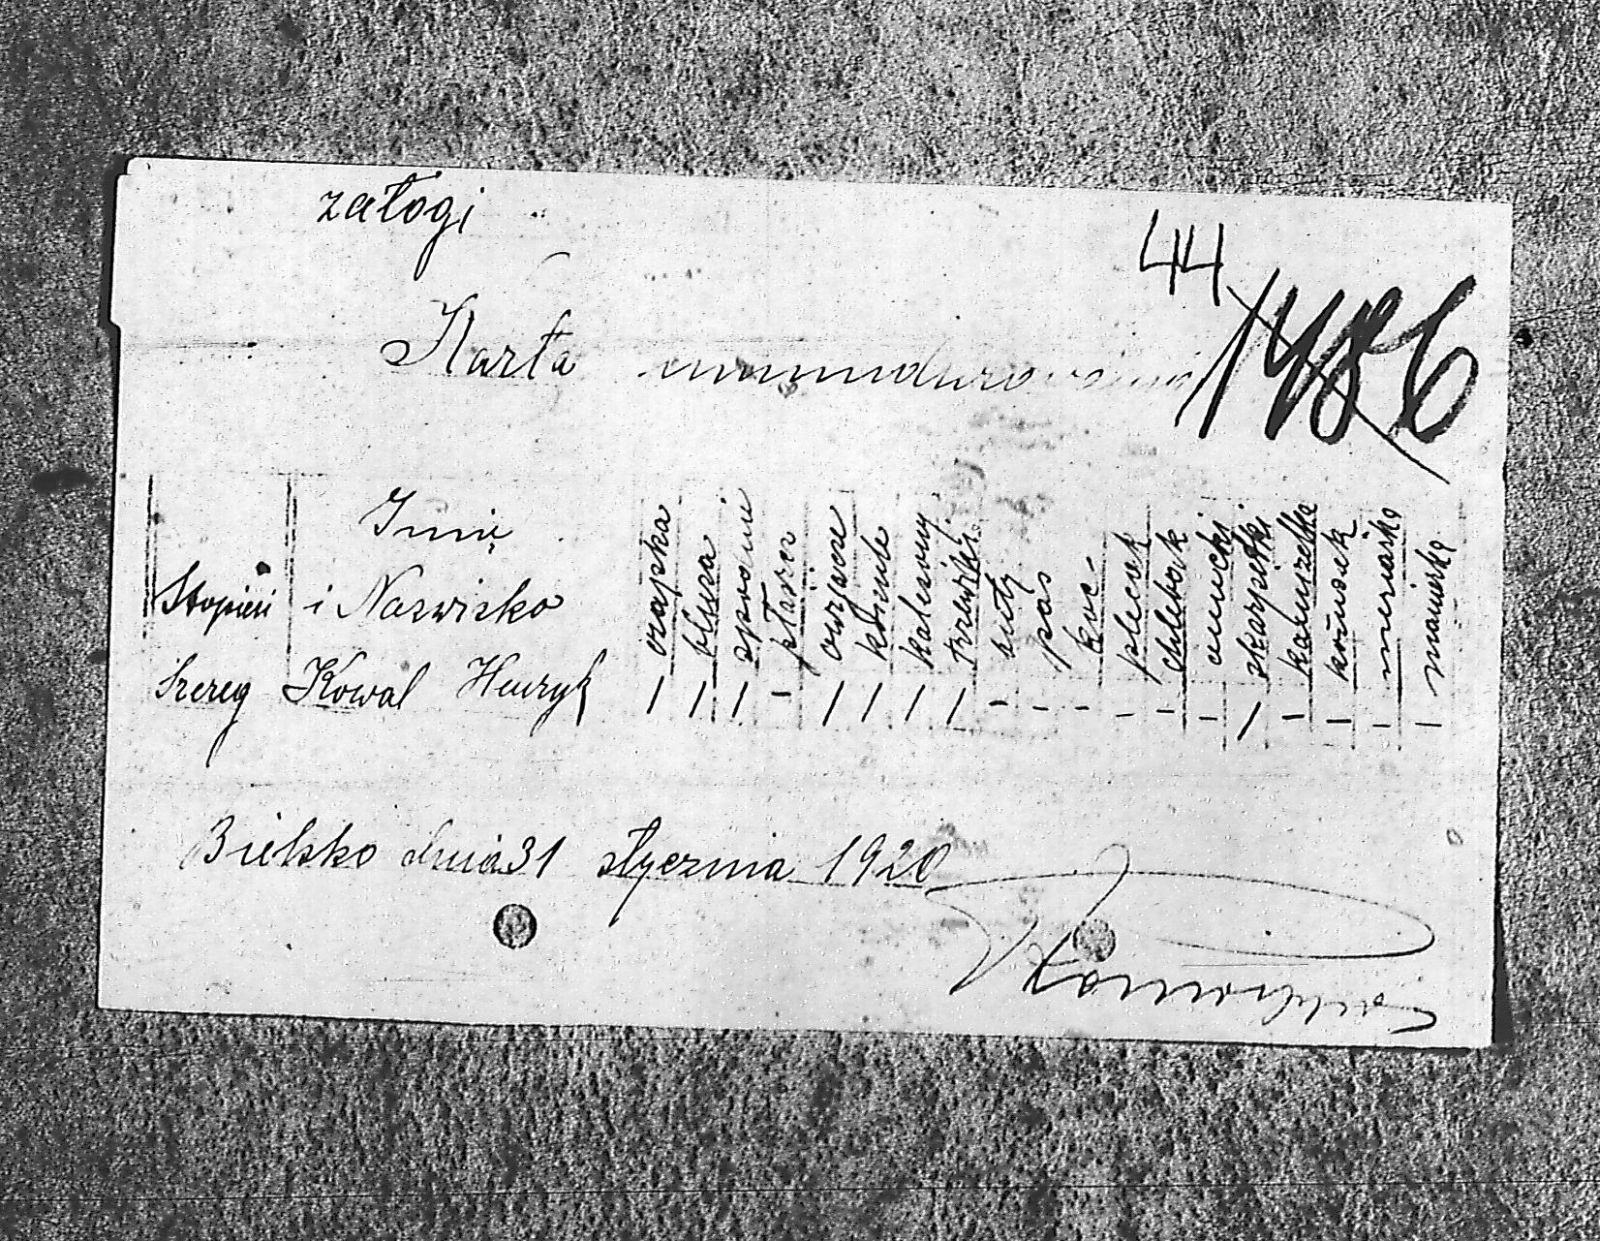 załogi
44
1486
Karta umundurowania
Stopień
Imię
i Nazwisko
czapka
bluza
spodnie
płaszcz
owijacze
koszule
kalesony
trzewiki
buty
pas
koc
plecak
chlebak
onucki
skarpetki
kamizelka
kożuszek
menażka
manierka
Szereg Kowal Henryk 1 1 1 - 1 1 1 1 - - - - - - 1 - - - -
Bielsko dnia 31 stycznia 1920